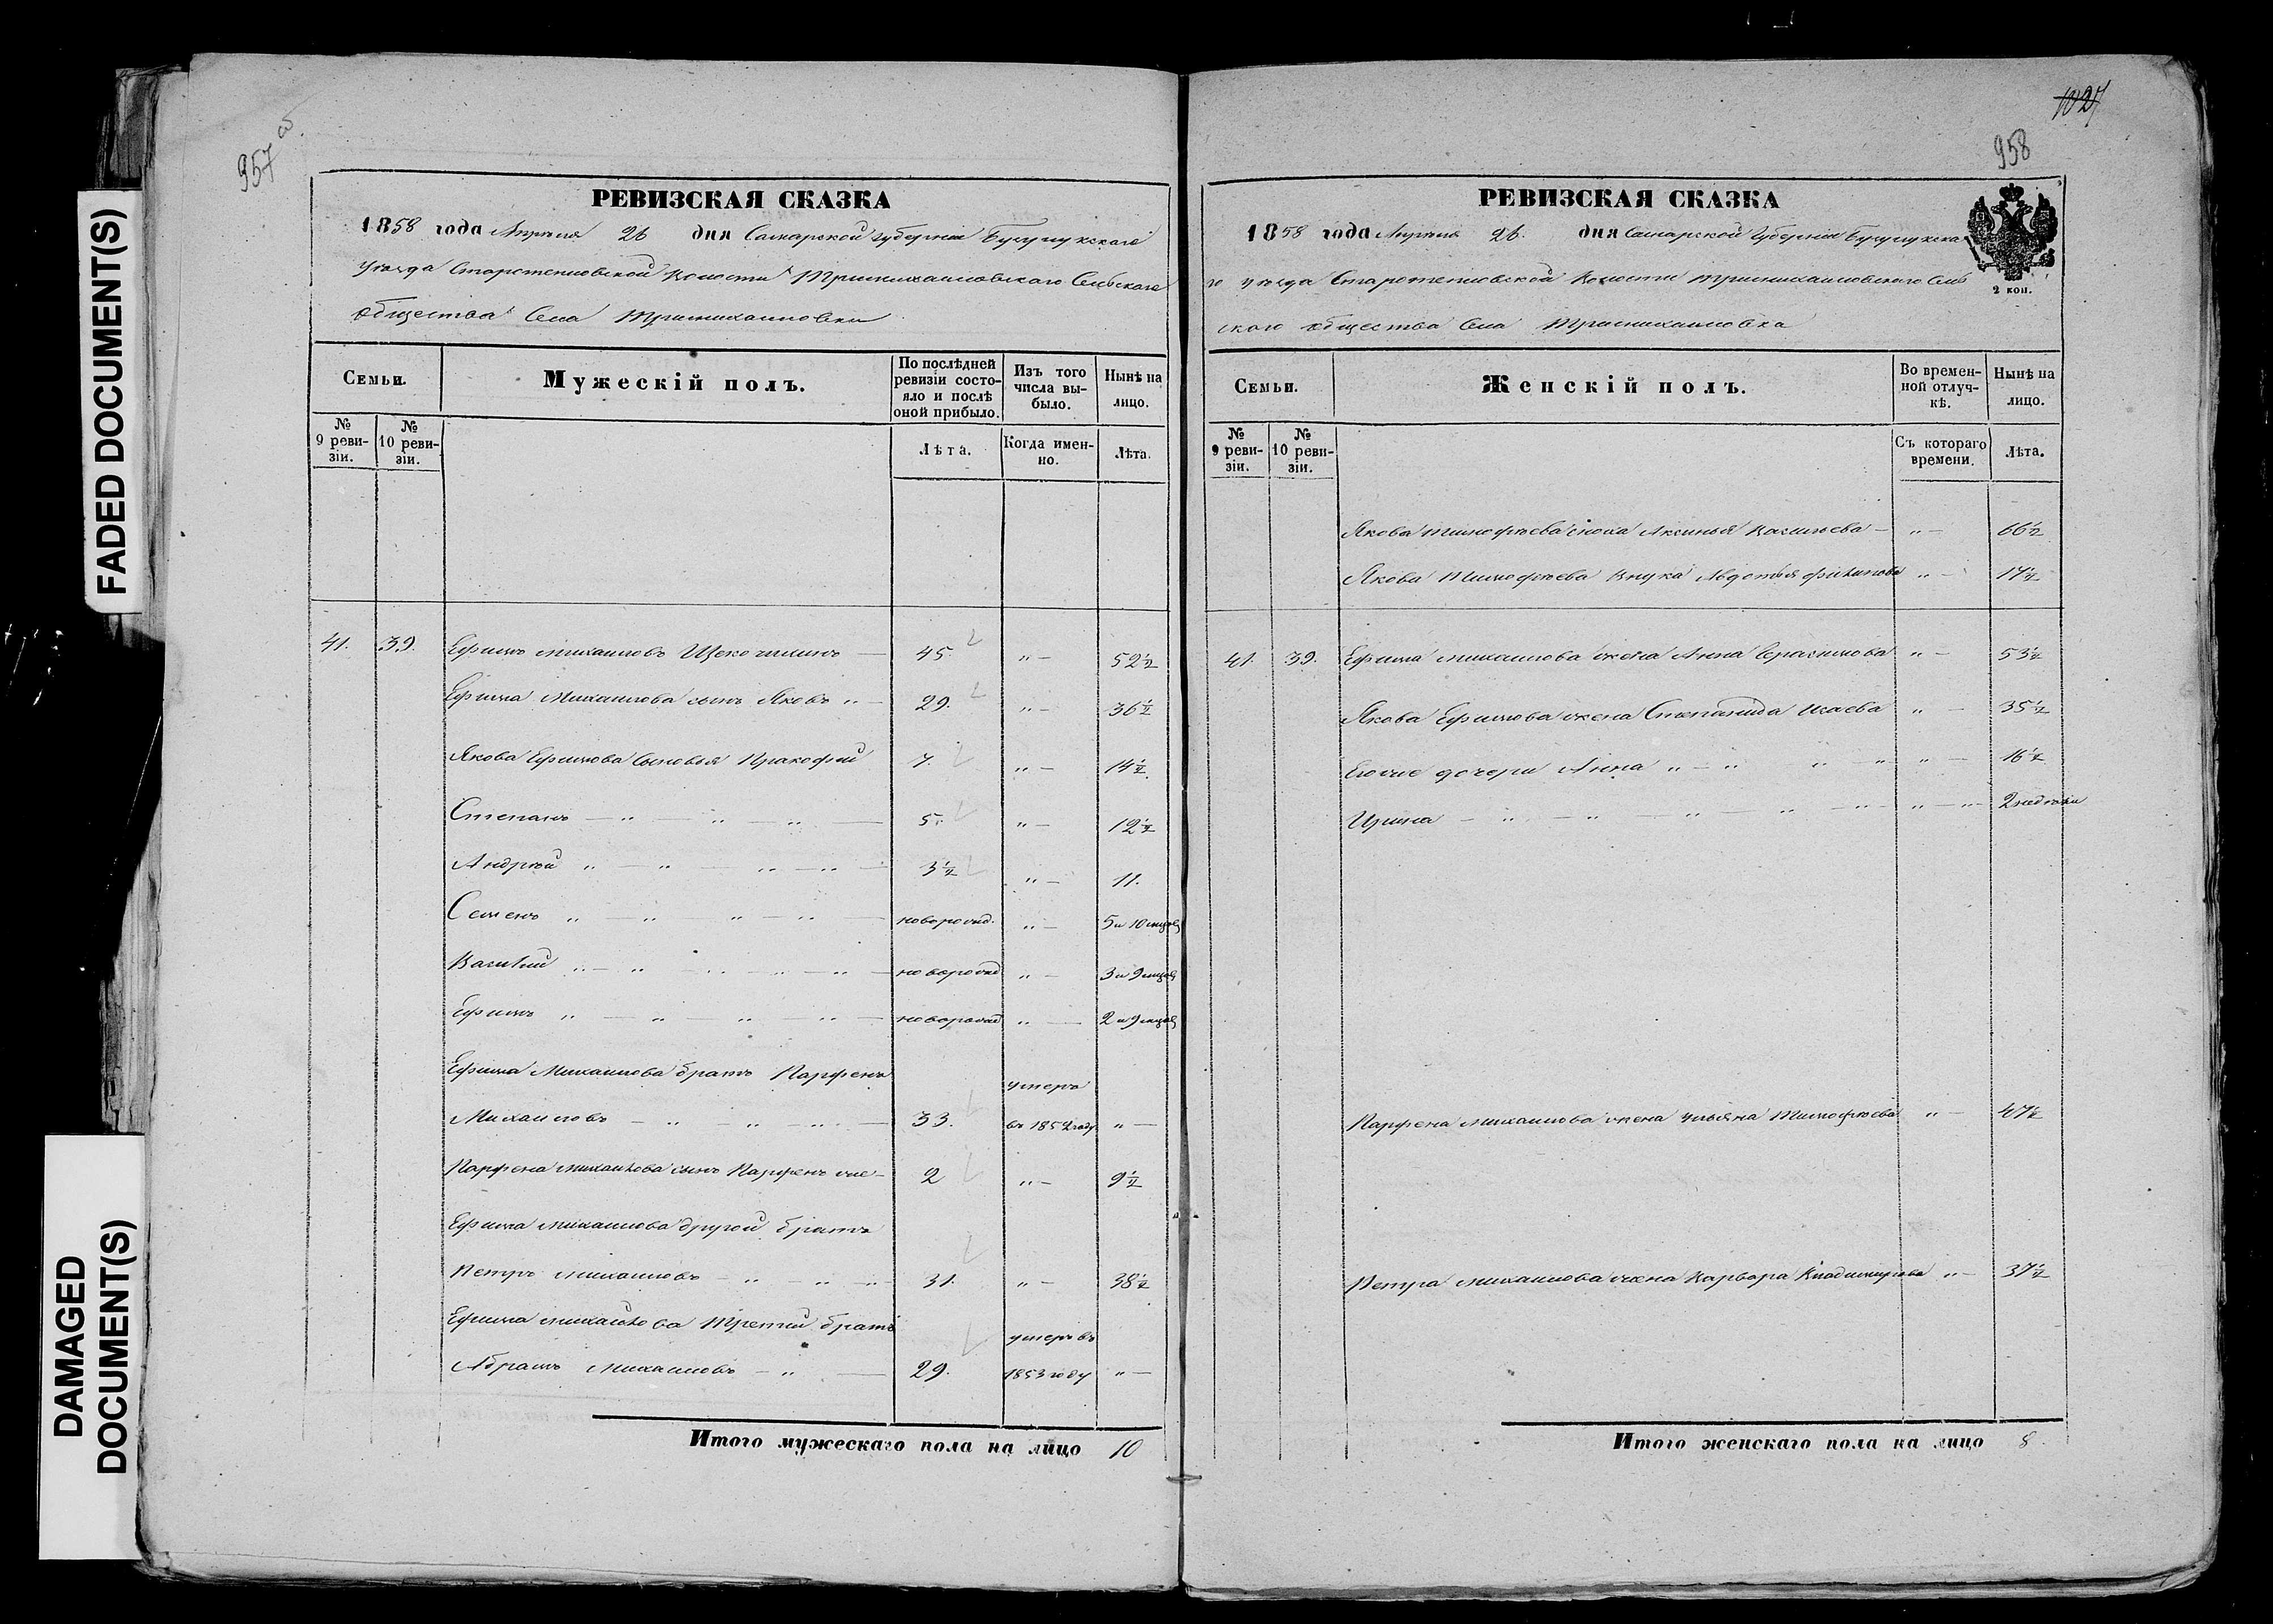 FADED DOCUMENT(S)
DAMAGED
DOCUMENT(S)
957
РЕВИЗСКАЯ СКАЗКА
1858 года Апреля 26 дня Самарской губернии Бузулукского
уезда Старотепловской волости Тримихаиловского Сельского
общества Села Тримихаиловки
Семьи.
Мужескій полъ.
По послѣдней ревизіи состояло и послѣ оной прибыло.
Изъ того числа выбыло.
Нынѣ на лицо.
№ 9 ревизіи.
№ 10 ревизіи.
Лѣта.
Когда именно.
Лѣта.
41. 39. Ефимъ михаиловъ Щекочихинъ — 45. „ — 52½
Ефима Михаилова сынъ Яковъ „ — 29. „ — 36½
Якова Ефимова Сыновья Пракофий 7. „ — 14½
Степанъ — „ — „ — „ — 5. „ — 12½
Андрѣй „ — „ — „ — „ — 3½ „ — 11.
Семенъ „ — „ — „ — „ —иоворожд. „ — 5 и 10 мцовъ
Василий „ — „ — „ — „ — „ — новорожд „ — 3 и 9 мцовъ
Ефимъ „ — „ — „ — „ — новорожд „ — 2 и 9 мцовъ
Ефима Михаилова братъ Парфенъ умеръ
Михаиловъ — „ — „ — „ — 33. въ 1852 году „ —
Парфена михаилова сынъ Парфенъ же — 2 „ — 9½
Ефима михаилова другой братъ
Петръ михаиловъ — „ — „ — „ 31. „ — 38½
Ефима михаилова Третий братъ умеръ въ
Абрамъ михаиловъ — „ — 29. 1853 году „ —
Итого мужескаго пола на лицо 10
1027
958
РЕВИЗСКАЯ СКАЗКА
2 коп.
1858 года Апреля 26. дня Самарской Губернии Бузулукска
го уезда Старотепловской Волости Тримихаиловского Сель
ского общества Села Тримихаиловка
Семьи.
Женскій полъ.
Во временной отлучкѣ.
Нынѣ на лицо.
№ 9 ревизіи.
№ 10 ревизіи.
Съ котораго времени.
Лѣта.
Якова тимофѣева сноха Аксинья Васильева — „ — 66½
Якова Тимофѣева внука Авдотья филипова „ — 17½
41. 39. Ефима михаилова жена Анна Герасимова „ — 53½
Якова Ефимова жена Степанида Исаева „ — 35½
Егоже дочери Анна „ — „ „ — „ „ — 16½
Ирина — „ — „ — „ — „ — „ — „ — „ — 2 недели
Парфена михаилова жена Ульяна Тимофѣева „ — 47½
Петра михаилова жена Варвара Владимирова „ — 37½
Итого женскаго пола на лицо 8.